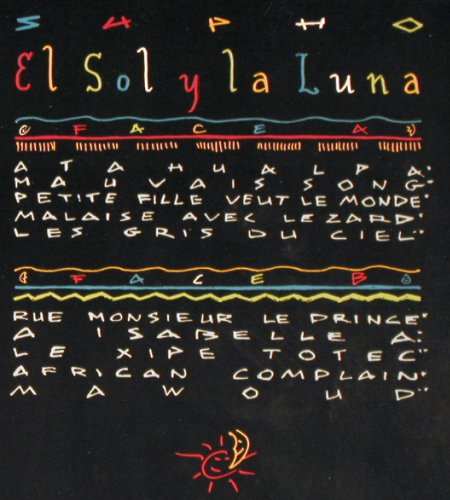 SAPHO
El Sol y la Luna
FACE A
ATAHUALPA
MAUVAIS SONG
PETITE FILLE VEUT LE MONDE
MALAISE AVEC LEZARD
LES GRIS DU CIEL
FACE B
RUE MONSIEUR LE PRINCE
A ISABELLE A.
LE XIPE TOTEC
AFRICAN COMPLAIN
MAWOUD